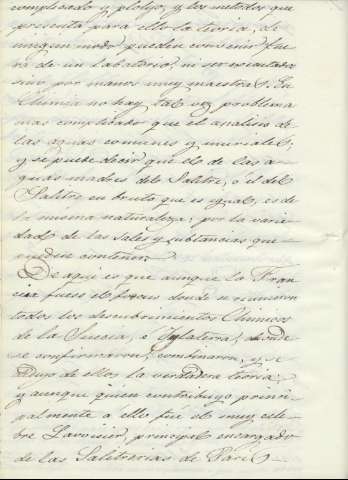 complicado y prolijo, y los metodos que
presenta para ello la teoria, de
ningun modo pueden convenir fue
ra de un labatorio, ni ser executados
sino por manos muy maestras. En
Chimia no hay tal vez problema
mas complicado que el analisis de
las aguas comunes y muriales,
y se puede decir que el de las a-
guas madres del Salitre, ó el del
Salitre en bruto que es igual, es de
la misma naturaleza; por la varie
dad de las sales y substancias que
pueden contener.
De aqui es que aunque la Fran
cia fuese el foco donde se reunieron
todos los descubrimientos Chimicos
de la Suecia, é Ynglaterra, donde
se confirmaron, combinaron, y se
dujo de ellos la verdadera teoria;
y aunque quien contribuyo princi
palmente á ello fué el muy cele
bre Lavoisier, principal encargado
de las Salitrerias de Paris